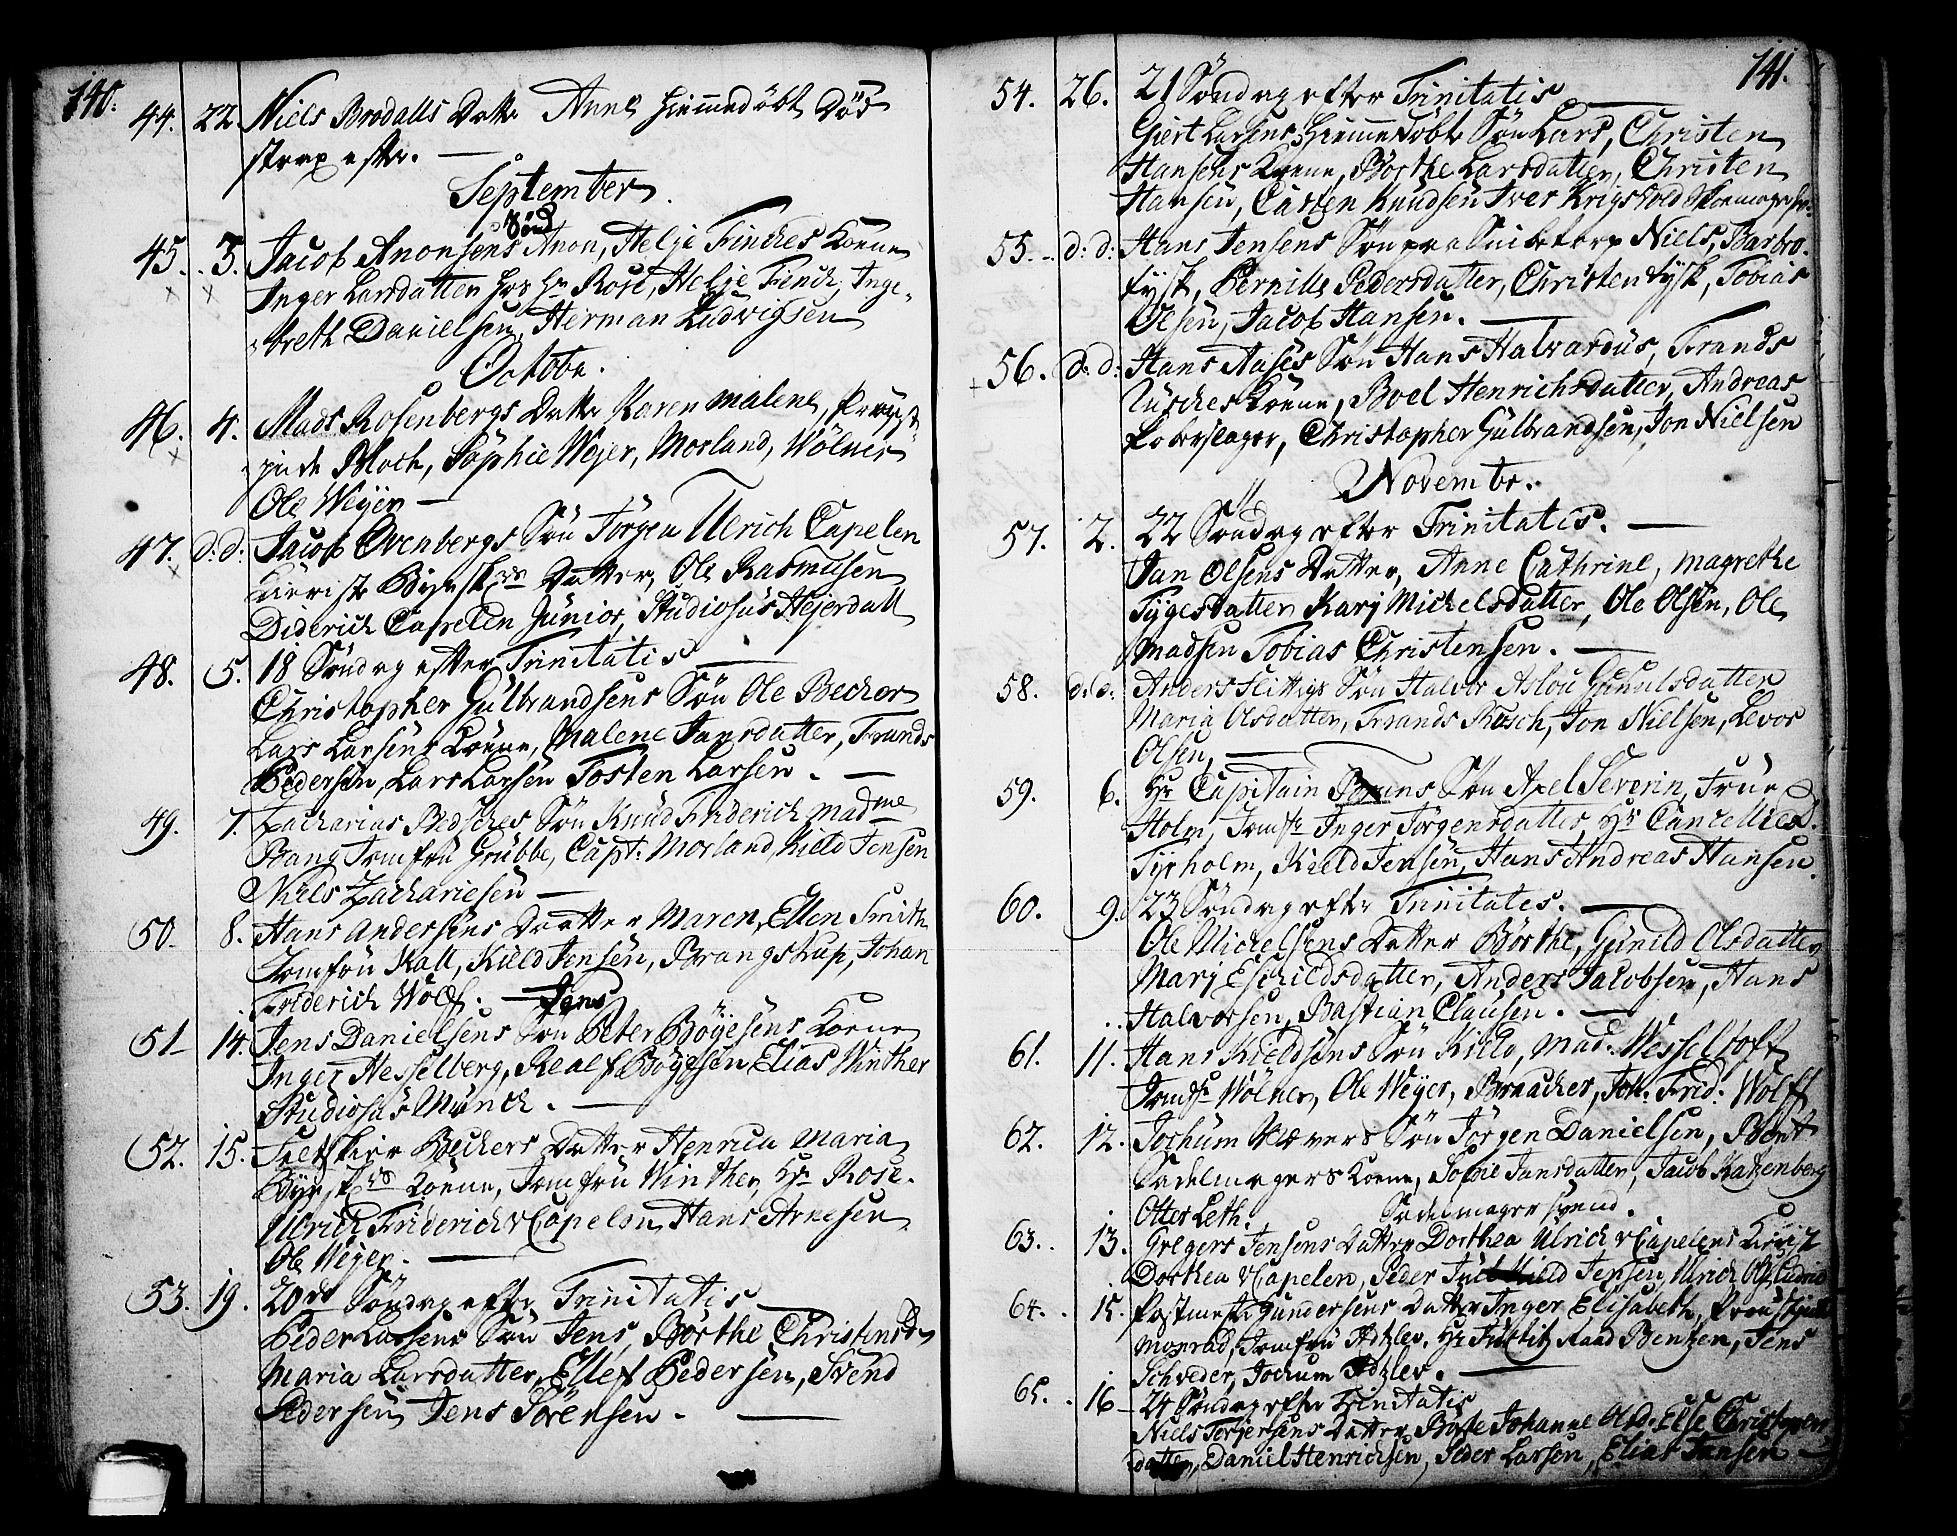 140.
44. 22. Niels Brodalls Datter Anne hiemmedöbt Död
strax efter.
September
Sönd
45. 3. Jacob Anonsens Anon, Helje Finches Koene
Inger Larsdatter hos Hr Rose, Helje Finch, Inge-
breth Danielsen, Herman Ludvigsen
October.
46. 4. Mads Rosenbergs Datter Karen Malene,
Bloch, Sophie Wejer, Morland, Wölner
Ole Weyer
47. d: d: Jacob Ovenbergs Sön Jörgen Ulrich Capelen
Datter, Ole Rasmusen
Diderich Capelen Junior, Studiosus Hejerdall
48. 5. 18 Söndag efter Trinitatis
Christopher Gulbrandsens Sön Ole Becher
Lars Larsens Koene, Malene Jansdatter, Frands
Pedersen, Lars Larsen Tosten Larsen.
49. 7. Zacharias Bedsches Sön Knud Friderich Madme
Bang Jomfru Grubbe, Capt: Morland, Kield Jensen
Niels Zachariesen
50. 8. Hans Andersens Datter Maren, Ellen Smith
Jomfru Kall, Kield Jensen, Brangstrup, Johan
Friderich Wolf. Jens
51 14. Jens Danielsens Sön Peter Böyesens Koene
Inger Hesselberg, Realf Böyesen Elias Winther
Studiosus Munch.
52. 15. Beckers Datter Henrica Maria
Koene, Jomfru Winther, Hr Rose.
Ulrich Friderich v Capelen Hans Arnesen
Ole Weyer.
53. 19. 20de Söndag efter Trinitatis
Peder Larsens Sön Jens, Börthe Christensd
Maria Larsdatter, Ellef Pedersen, Svend
Pedersen Jens Sörensen.
141.
54. 26. 21 Söndag efter Trinitatis
Giert Larsens hiemmedöbte Sön Lars, Christen
Hansens Koene, Börthe Larsdatter, Christen
Hansen, Carsten Knudsen Iver Krigsvold
55. d: d: Hans Jensens Sön paa Niels, Barbro
Tysk, Pernille Pedersdatter, Christen Tysk, Tobias
Olsen, Jacob Hansen.
56. d: d: Hans Aases Sön Hans Halvardus, Frands
Rusches Koene, Boel Henrichsdatter, Andreas
Koberslager, Christopher Gulbrandsen, Jon Nielsen
November.
57. 2. 22 Söndag efter Trinitatis.
Jan Olsens Datter, Anne Cathrine, Magrethe
Tygesdatter Karj Michelsdatter, Ole Olsen, Ole
Madsen Tobias Christensen.
58. d: d: Anders Flittigs Sön Halvor Aslou Gunulsdatter
Maria Olsdatter, Frands Rusch, Jon Nielsen, Levor
Olsen,
59. 6. Hr Capitain Bruns Sön Axel Severin, Frue
Holm, Jomfr Inger Jörgensdatter, Hr Cancellied.
Tyrholm, Kield Jensen, Hans Andreas Hansen.
60. 9. 23 Söndag efter Trinitatis.
Ole Michelsens Datter Börthe, Gunild Olsdatter
Marj Eschildsdatter, Anders Jacobsen, Hans
Halvorsen, Bastian Clausen.
61. 11. Hans Kieldsens Sön Kield, Mad. Wesseltoft
Jomfr Wölner, Ole Weyer, Braacher, Joh: Fred: Wolff
62. 12. Jochum Sön Jörgen Danielsen, Bent
Sadelmagers Koene, Sophie Jansdatter, Jacob Katzenberg
Otter Leth. Sadelmagersvend.
63. 13. Gregers Jensens Datter Dorthea Ulrich v Capelens
Dorthea v Capelen, Peder Juel Kield Jensen, Ulrich
64. 15. Postmester Gundersens Datter Inger Elisabeth,
Monrad, Jomfru Adzlev. Hr Justitz Raad Bentzen, Jens
Schreder, Jochum Adzlev.
65. 16 24 Söndag efter Trinitatis
Niels Terjersens Datter Johanne Olsd: Else Christophers
datter, Daniel Henrichsen, Peder Larsen, Elias Jensen